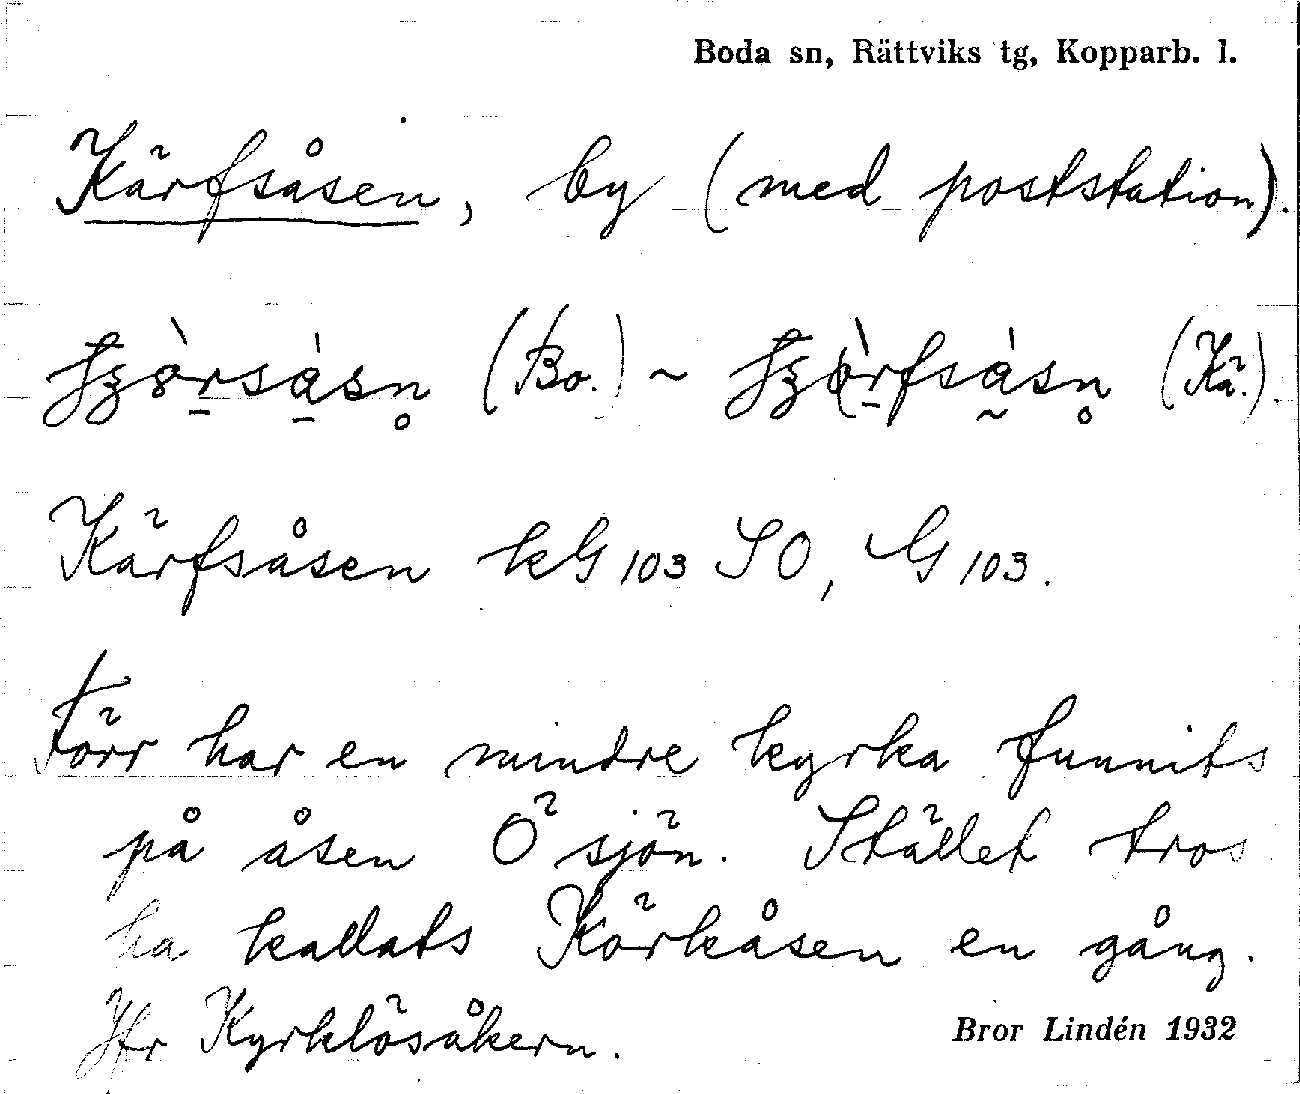 Boda sn, Rättviks tg, Kopparb. l.
Kärfsåsen, by (med poststation).
(Bo.) ~ (Kä.).
Kärfsåsen kG 103 SO, G 103.
Förr har en mindre kyrka funnits
på åsen Ö sjön. Stället tros
ha kallats Körkåsen en gång.
Jfr Kyrklösåkern.
Bror Lindén 1932